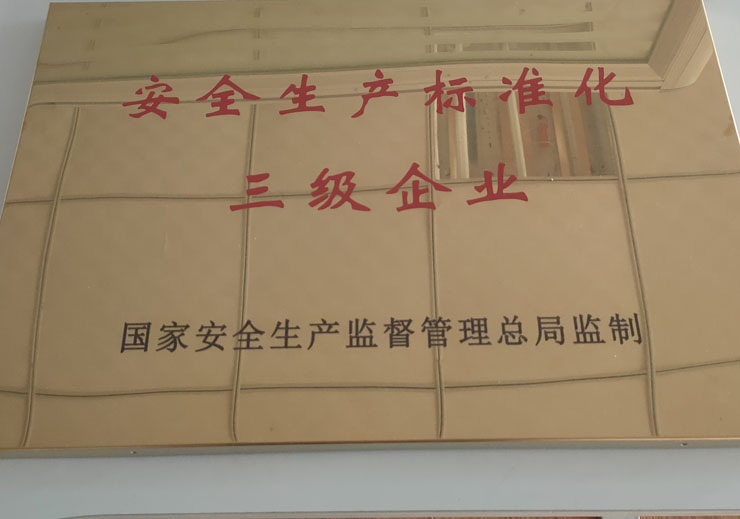 安全生产标准化
三级企业
国家安全生产监督管理总局监制